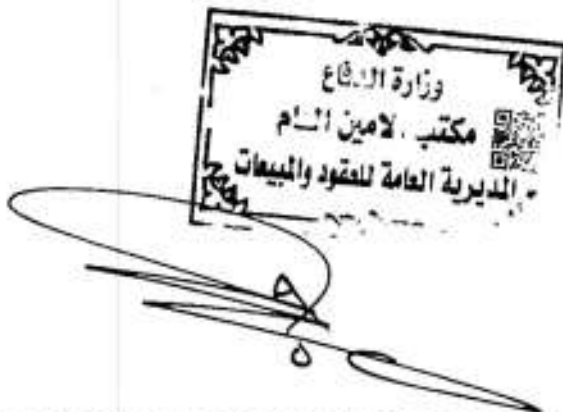 وزارة الدفاع
مكتب الامين العام
المديرية العامة للعقود والمبيعات
٨
٥